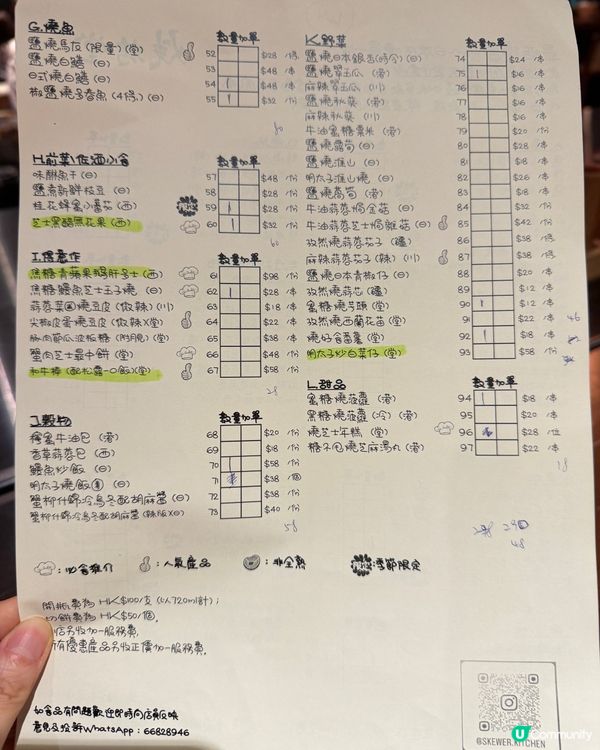 G.燒魚
數量加單
鹽燒馬友(限量)(堂) 52 $28 /條
鹽燒白鱔 (日) 53 $48 /串
日式燒白鱔 (日) 54 $48 /串
椒鹽燒多春魚(4條)(日) 55 $32 /份
80
H.前菜/佐酒小食
數量加單
味醂魚干(日) 57 $48 /份
鹽煮新鮮枝豆 (日) 58 $28 /份
桂花蜂蜜小番茄 (西) 59 $28 /份
芝士黑醋無花果(西) 60 $32 /份
60
I.惹意作
數量加單
焦糖青蘋果鵝肝多士(西) 61 $98 /份
焦糖鰻魚芝士玉子燒(日) 62 $28 /串
蒜蓉菜燒豆皮(微辣)(川) 63 $18 /串
尖椒皮蛋燒豆皮(微辣)(堂) 64 $22 /串
65 $38 /串
蟹肉芝士最中餅(堂) 66 $48 /份
和牛棒(配松露一口飯)(堂) 67 $58 /串
28
J.穀物
數量加單
檸蜜牛油包 (港) 68 $20 /份
香草蒜蓉包 (西) 69 $18 /份
鰻魚炒飯 (日) 70 $58 /份
明太子燒飯 (日) 71 $38 /個
蟹柳什錦冷烏冬配胡麻醬(日) 72 $38 /份
蟹柳什錦冷烏冬配胡麻醬(辣版)(日) 73 $40 /份
58
K.野菜
數量加單
鹽燒日本銀杏(時令)(日) 74 $24 /串
鹽燒翠玉瓜 (港) 75 $16 /串
麻辣翠玉瓜 (川) 76 $16 /串
鹽燒秋葵 (港) 77 $16 /串
麻辣秋葵 (川) 78 $16 /串
牛油蜜糖粟米 (港) 79 $20 /份
鹽燒露筍 (日) 80 $28 /串
鹽燒淮山 (日) 81 $18 /串
明太子淮山燒(日) 82 $26 /串
鹽燒萵筍 (港) 83 $18 /串
牛油蒜蓉焗金菇(日) 84 $32 /份
牛油蒜蓉芝士焗雜菇(日) 85 $42 /份
孜然燒蒜蓉茄子(疆) 86 $38 /條
麻辣蒜蓉茄子(辣)(川) 87 $38 /條
鹽燒日本青椒仔(日) 88 $20 /串
孜然燒蒜芯 (疆) 89 $12 /串
蜜糖燒芋頭 (堂) 90 $12 /串
孜然燒西蘭花苗(堂) 91 $22 /串
燒好食番薯 (堂) 92 $18 /串
明太子炒白菜仔(堂) 93 $58 /份
46
L.甜品
數量加單
蜜糖燒菠蘿 (港) 94 $18 /串
黑糖燒菠蘿(冷)(港) 95 $20 /串
燒芝士年糕 (堂) 96 $28 /位
糖不甩燒芝麻湯丸(港) 97 $22 /串
18
290
48
:必食推介
:人氣產品
:非全熟
:季節限定
開瓶費為 HK$100/支(以720ml計);
切餅費為 HK$50/個,
店另收加一服務費,
有優惠產品另收正價加一服務費,
如食品有問題歡迎即時向店員反映
意見及投訴WhatsApp : 66828946
@SKEWER.KITCHEN
U Community